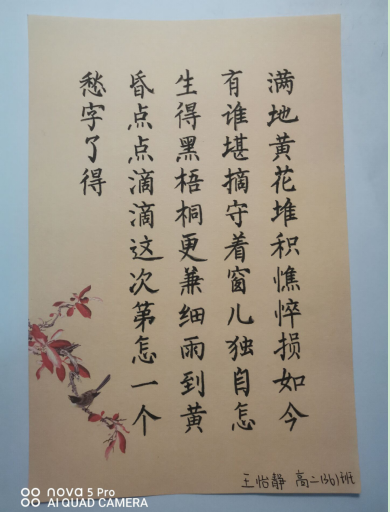 满地黄花堆积憔悴损如今
有谁堪摘守着窗儿独自怎
生得黑梧桐更兼细雨到黄
昏点点滴滴这次第怎一个
愁字了得
王怡静 高二(36)班
nova 5 Pro
AI QUAD CAMERA